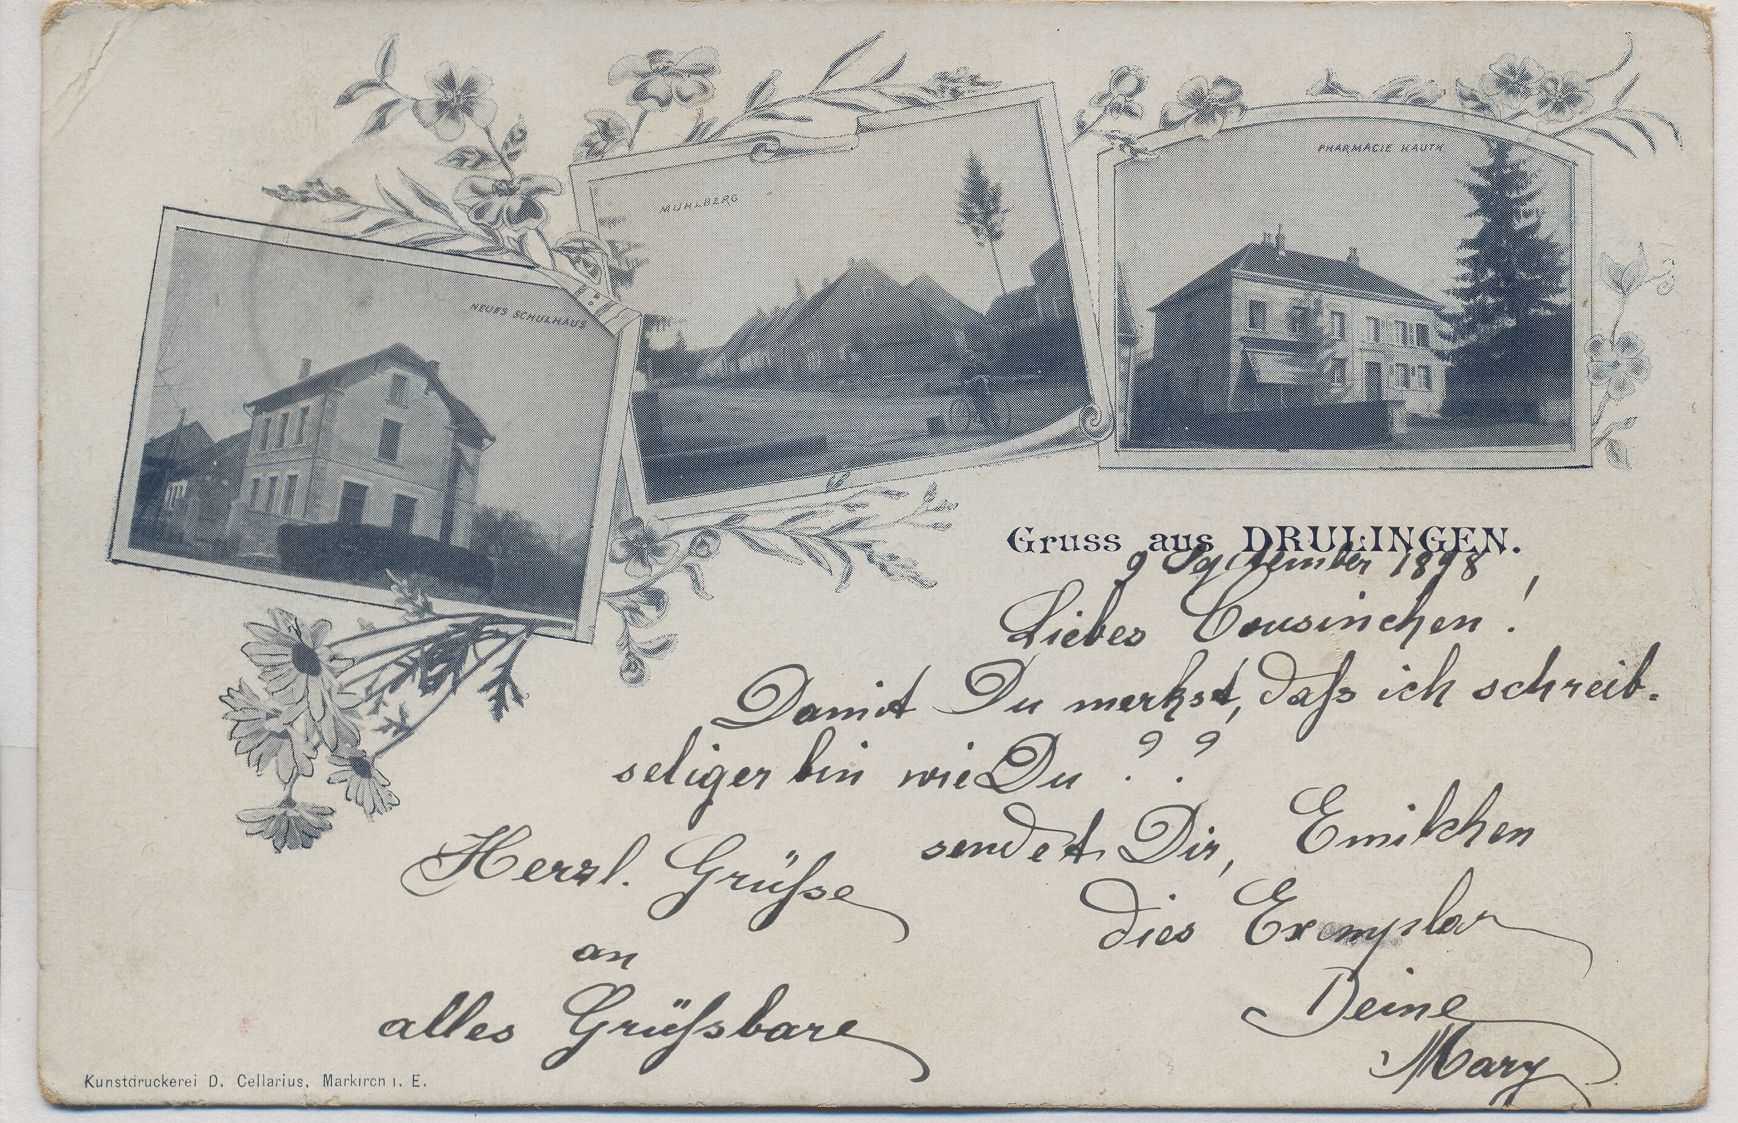 NEUES SCHULHAUS
MÜHLBERG
PHARMACIE HAUTH
Gruss aus DRULINGEN.
9 September 1898
Liebes Cousinchen!
Damit Du merkst, daſs ich schreib-
seliger bin wie Du ??
sendet Dir, Emilchen
dies Exemplar
Deine
Mary
Herzl. Grüſse
an
alles Grüſsbare
Kunstdruckerei D. Cellarius, Markirch i. E.